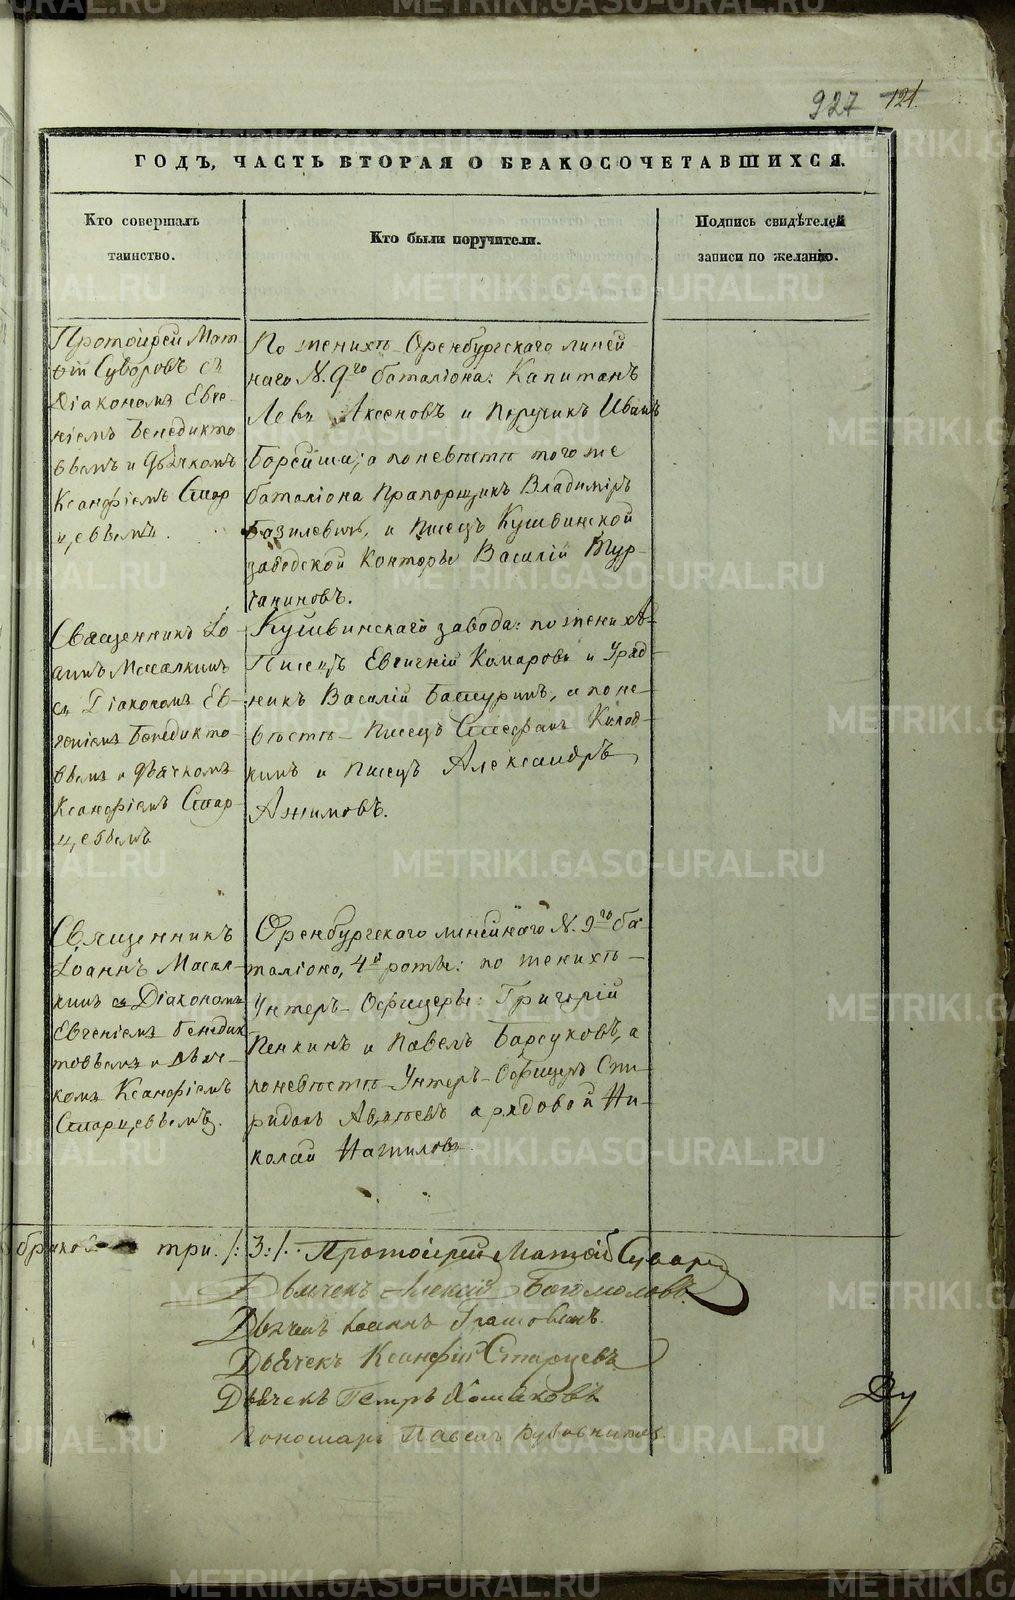 927 121.
ГОДЪ, ЧАСТЬ ВТОРАЯ О БРАКОСОЧЕТАВШИХСЯ.
Кто совершалъ
таинство.
Кто были поручители.
Подпись свидѣтелей
записи по желанію.
Протоіерей Мат-
ѳій Суворовъ съ
Діакономъ Евге-
ніемъ Бенедикто
вымъ и дьячкомъ
Ксанфіемъ Стар
цевымъ.
По женихѣ Оренбургскаго линей
наго N. 9го баталіона: Капитанъ
Левъ Аксеновъ и Поручикъ Иванъ
Борейша; а по невѣстѣ того же
баталіона Прапорщикъ Владиміръ
Базилевичъ, и Писецъ Кушвинской
заводской Конторы Василій Тур-
чаниновъ.
Священникъ Іо-
аннъ Масалкинъ
съ Діакономъ Ев-
геніемъ Бенедикто-
вымъ и дьячкомъ
Ксанфіемъ Стар-
цевымъ
Кушвинскаго завода: по женихѣ-
Писецъ Евгигній Комаровъ и Уряд-
никъ Василій Башуринъ, а по не-
вѣстѣ- Писецъ Стефанъ Колод-
кинъ и Писецъ Александръ
Ажимовъ.
Священникъ
Іоаннъ Масал-
кинъ съ Діакономъ
Евгеніемъ Бенедик
товымъ и дьяч-
комъ Ксанфіемъ
Старцевымъ.
Оренбургскаго линейнаго N. 9го ба-
таліона, 4й роты: по женихѣ-
Унтеръ-Офицеры: Григорій
Пенкинъ и Павелъ Барсуковъ, а
по невѣстѣ Унтеръ-Офицеръ Спи-
ридонъ Авдѣевъ а рядовой Ни-
колай Нагиловъ
браков три. /:3:/. Протоіерей Матѳій Суворов
Дьячекъ Алексій Богомоловъ
Дьячекъ Іоаннъ
Дьячекъ Ксанфій Старцевъ
Дьячекъ Петръ Хомяковъ
Пономарь Павелъ
Ду
METRIKI.GASO-URAL.RU